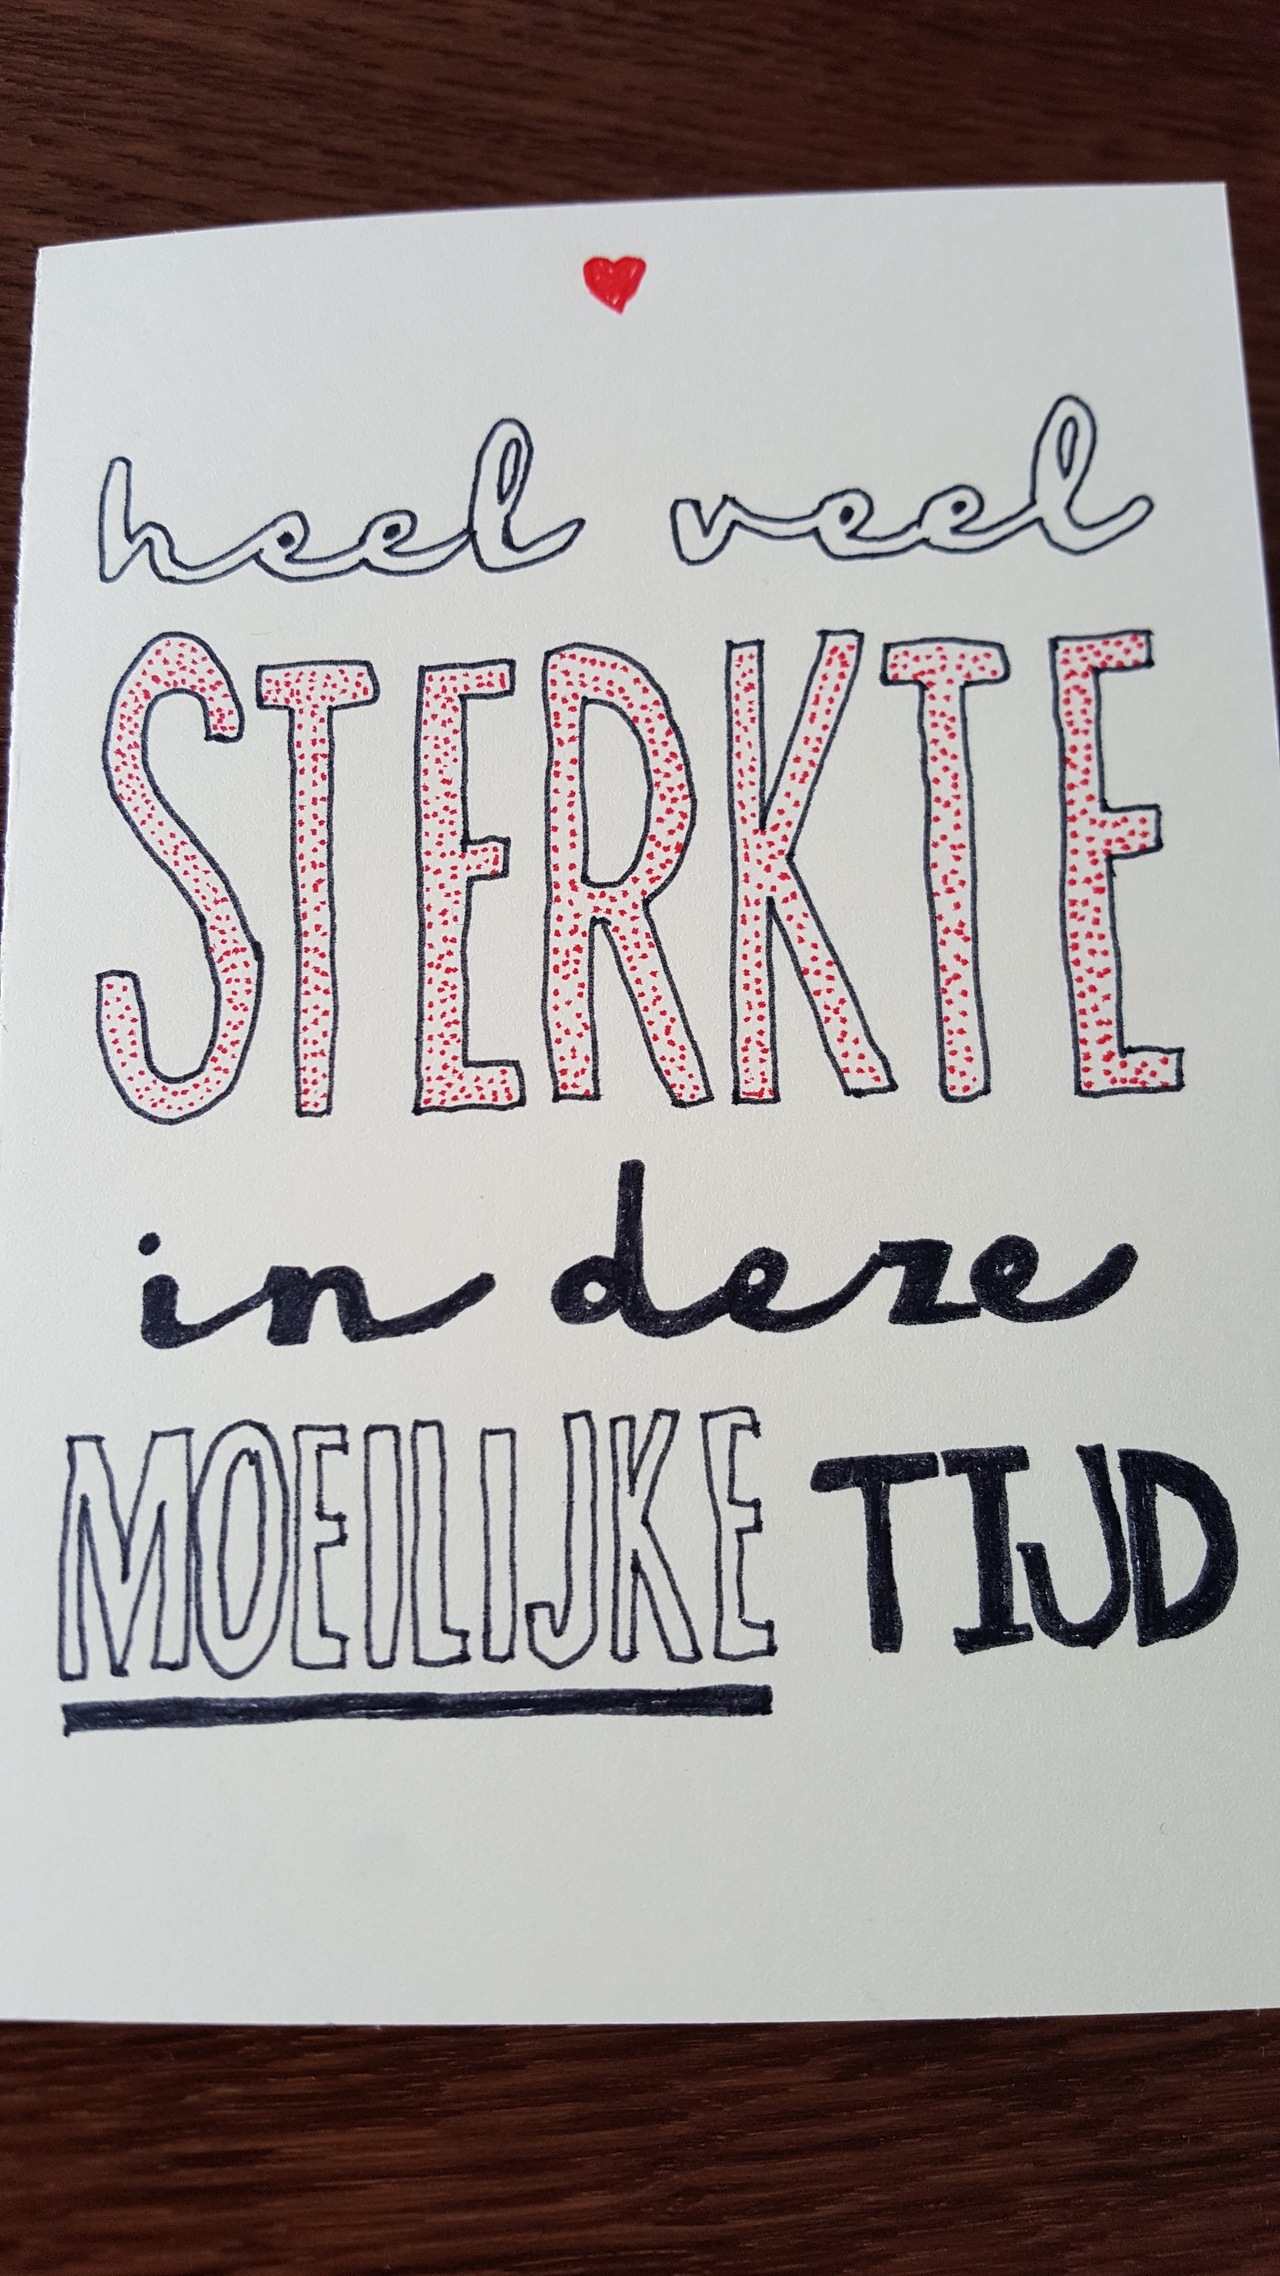 heel veel
STERKTE
in deze
MOEILIJKE TIJD